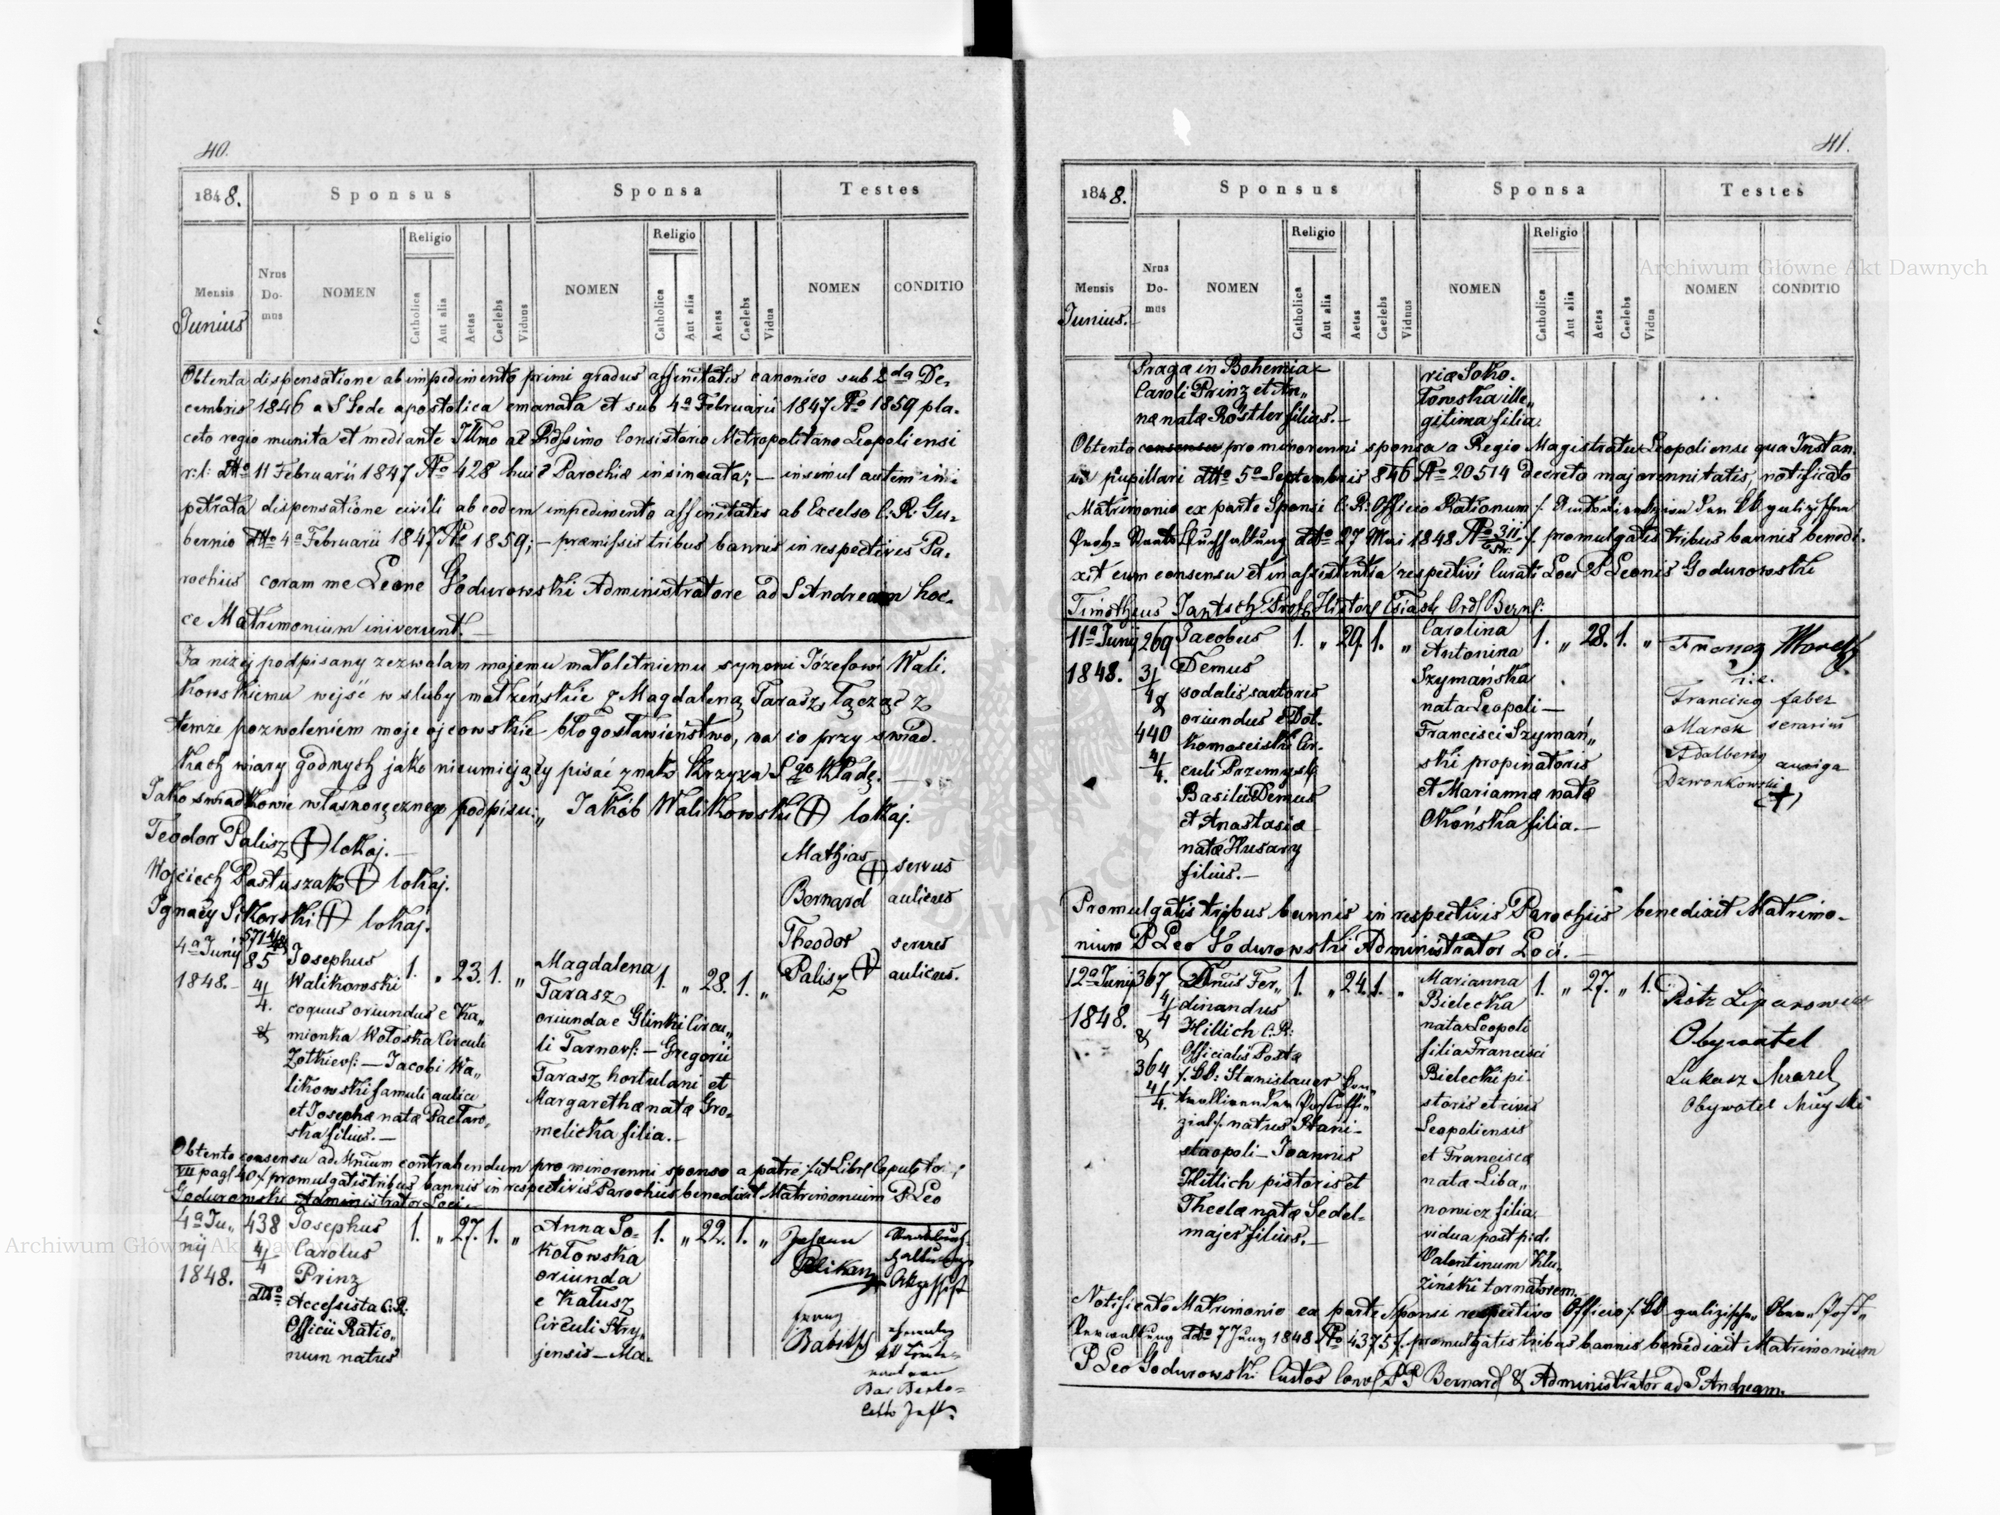 40.
1848.
Sponsus
Sponsa
Testes
Mensis
Junius
Nrus Do-mus
NOMEN
Religio
Catholica
Aut alia
Aetas
Caelebs
Viduus
NOMEN
Religio
Catholica
Aut alia
Aetas
Caelebs
Vidua
NOMEN
CONDITIO
Obtenta dispensatione ab impedimento primi gradus affinitatis canonico sub 2da De-
cembris 1846 a S Sede apostolica emanata et sub 4a Februarii 1847 No 1859 pla-
ceto regio munita et mediante Illmo ac Rdssimo Consistorio Metropolitano Leopoliensi
r: l: dtto 11 Februarii 1847 No 428 huic Parochiæ insinuata; — insimul autem im-
petrata dispensatione civili ab eodem impedimento affinitatis ab Excelso C. R. Gu-
bernio dtto 4a Februarii 1847 No 1859; — præmissis tribus bannis in respectivis Pa-
rochiis coram me Leone Godurowski Administratore ad S Andream hoc-
ce Matrimonium iniverunt. —
Ja niżej podpisany zezwalam mojemu małoletniemu synowi Józefowi Wali-
kowskiemu wejść w śluby małżeńskie z Magdaleną Tarasz, łącząc z
temże pozwoleniem moje ojcowskie błogosławieństwo, na co przy świad-
kach wiary godnych jako nieumiejący pisać znak krzyża S go kładę. —
Jako świadkowie własnoręcznego podpisu: „ Jakób Walikowski (+) lokaj.
Teodor Palisz (+) lokaj. —
Wojciech Pastuszak (+) lokaj.
Ignacy Sikorski (+) lokaj.
Mathias (+) servus
Bernard aulicus
Theodor servus
Palisz + aulicus.
4a Junij
1848. —
571 4/4 &
85
4/
4.
&
Josephus
Walikowski
coquus oriundus e Ka„
mionka Wołoska Circuli
Żołkievs: — Jacobi Wa„
likowski famuli aulici
et Josephæ natæ Pactaro-
ska filius. —
1. „ 23. 1. „
Magdalena
Tarasz
oriunda e Glinki Circu„
li Tarnovs: — Gregorii
Tarasz hortulani et
Margarethæ natæ Gro-
melicka filia. —
1. „ 28. 1. „
Obtento consensu ad Mnium contrahendum pro minorenni sponso a patre /: ut Libr. Copulator:
VII pag. 40 :/ promulgatis tribus bannis in respectivis Parochiis benedixit Matrimonium P Leo
Godurowski Administrator Loci. —
4a Ju„
nij
1848.
438
4/
4
dtto
Josephus
Carolus
Prinz
Accessista C: R:
Officii Ratio„
num natus
1. „ 27. 1. „
Anna So-
kołowska
oriunda
e Kałusz
Circuli Stry„
jensis — Ma-
1. „ 22. 1. „
Johann
Pelikan
Franz
Babitsch
41.
1848.
Sponsus
Sponsa
Testes
Mensis
Junius.
Nrus Do-mus
NOMEN
Religio
Catholica
Aut alia
Aetas
Caelebs
Viduus
NOMEN
Religio
Catholica
Aut alia
Aetas
Caelebs
Vidua
NOMEN
CONDITIO
Pragæ in Bohemia —
Caroli Prinz et An„
næ natæ Röstler filius. —
riæ Soko-
łowska ille„
gitima filia.
Obtento consensu pro minorenni sponsa a Regio Magistratu Leopoliense qua Instan-
tia pupillari dtto 5a Septembris 846 No 20514 Decreto majorennitatis, notificato
Matrimonio ex parte Sponsi C: R: Officio Rationum
Buchhaltung dtto 27 Mai 1848 No 311 :/ promulgatis tribus bannis benedi-
xit cum consensu et in assistentia respectivi Curati Loci P Leonis Godurowski
Timotheus Jantsch Prof. Histor. Ord. Bern:
11a Junij
1848.
269
3/
4
&
440
4/
4.
Jacobus
Demus
sodalis sartoris
oriundus e Dot-
komościski Cir-
culi Przemysl:
Basilii Demus
et Anastasiæ
natæ Husary
filius. —
1. „ 29. 1. „
Carolina
Antonina
Szymańska
nata Leopoli —
Francisci Szymań„
ski propinatoris
et Mariannæ natæ
Okońska filia. —
1. „ 28. 1. „
Franz Marek
Franciscq faber
Marek serarius
Adalbertq auriga
Dzwonkowski (+)
Promulgatis tribus bannis in respectivis Parochiis benedixit Matrimo-
nium P Leo Godurowski Administrator Loci. —
12a Junij
1848.
367
4/
4
&
364
4/
4.
Dnus Fer„
dinandus
Hillich C. R:
Officialis Postæ
natus Stani-
slaopoli — Joannis
Hillich pistoris et
Theclæ natæ Sedel-
majer filius. —
1. „ 24. 1. „
Marianna
Bielecka
nata Leopoli
filia Francisci
Bielecki pi-
storis et civis
Leopoliensis
et Franciscæ
natæ Liba„
nowicz filia
vidua post p: d:
Valentinum Klu-
ziński tornatorem.
1. „ 27. „ 1.
Piotr Liparowski
Obywatel
Łukasz Mrarek
Obywatel Mieyski
Notificato Matrimonio ex parte Sponsi respectivo Officio /: k k galizische Ober-Post-
Verwaltung dtto 7 Juny 1848 No 4375 :/ promulgatis tribus bannis benedixit Matrimonium
P Leo Godurowski Custos Conv. PP Bernard. & Administrator ad S Andream.
Archiwum Główne Akt Dawnych
Archiwum Główne Akt Dawnych